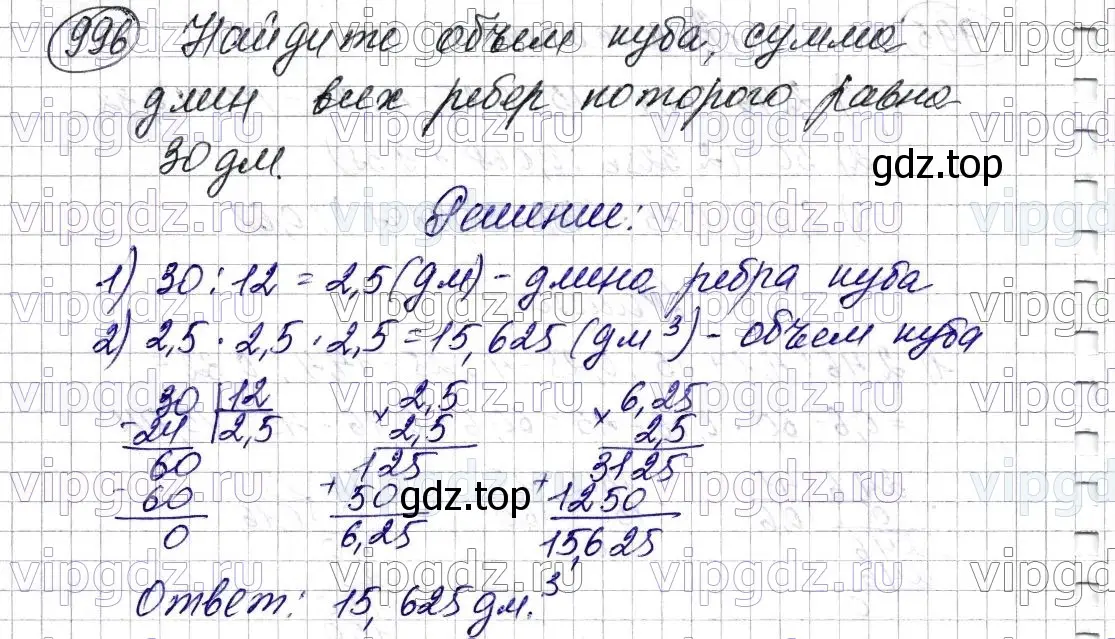 996 Найдите объем куба, сумма
длин всех ребер которого равна
30 дм.
gdz.top
Решение:
1) 30 : 12 = 2,5 (дм) - длина ребра куба
2) 2,5 · 2,5 · 2,5 = 15,625 (дм³) - объем куба
30 | 12
- 24 | 2,5
60
- 60
0
2,5
× 2,5
125
+ 50
6,25
gdz.top
6,25
× 2,5
3125
+ 1250
15,625
Ответ: 15,625 дм.³
vipgdz.ru